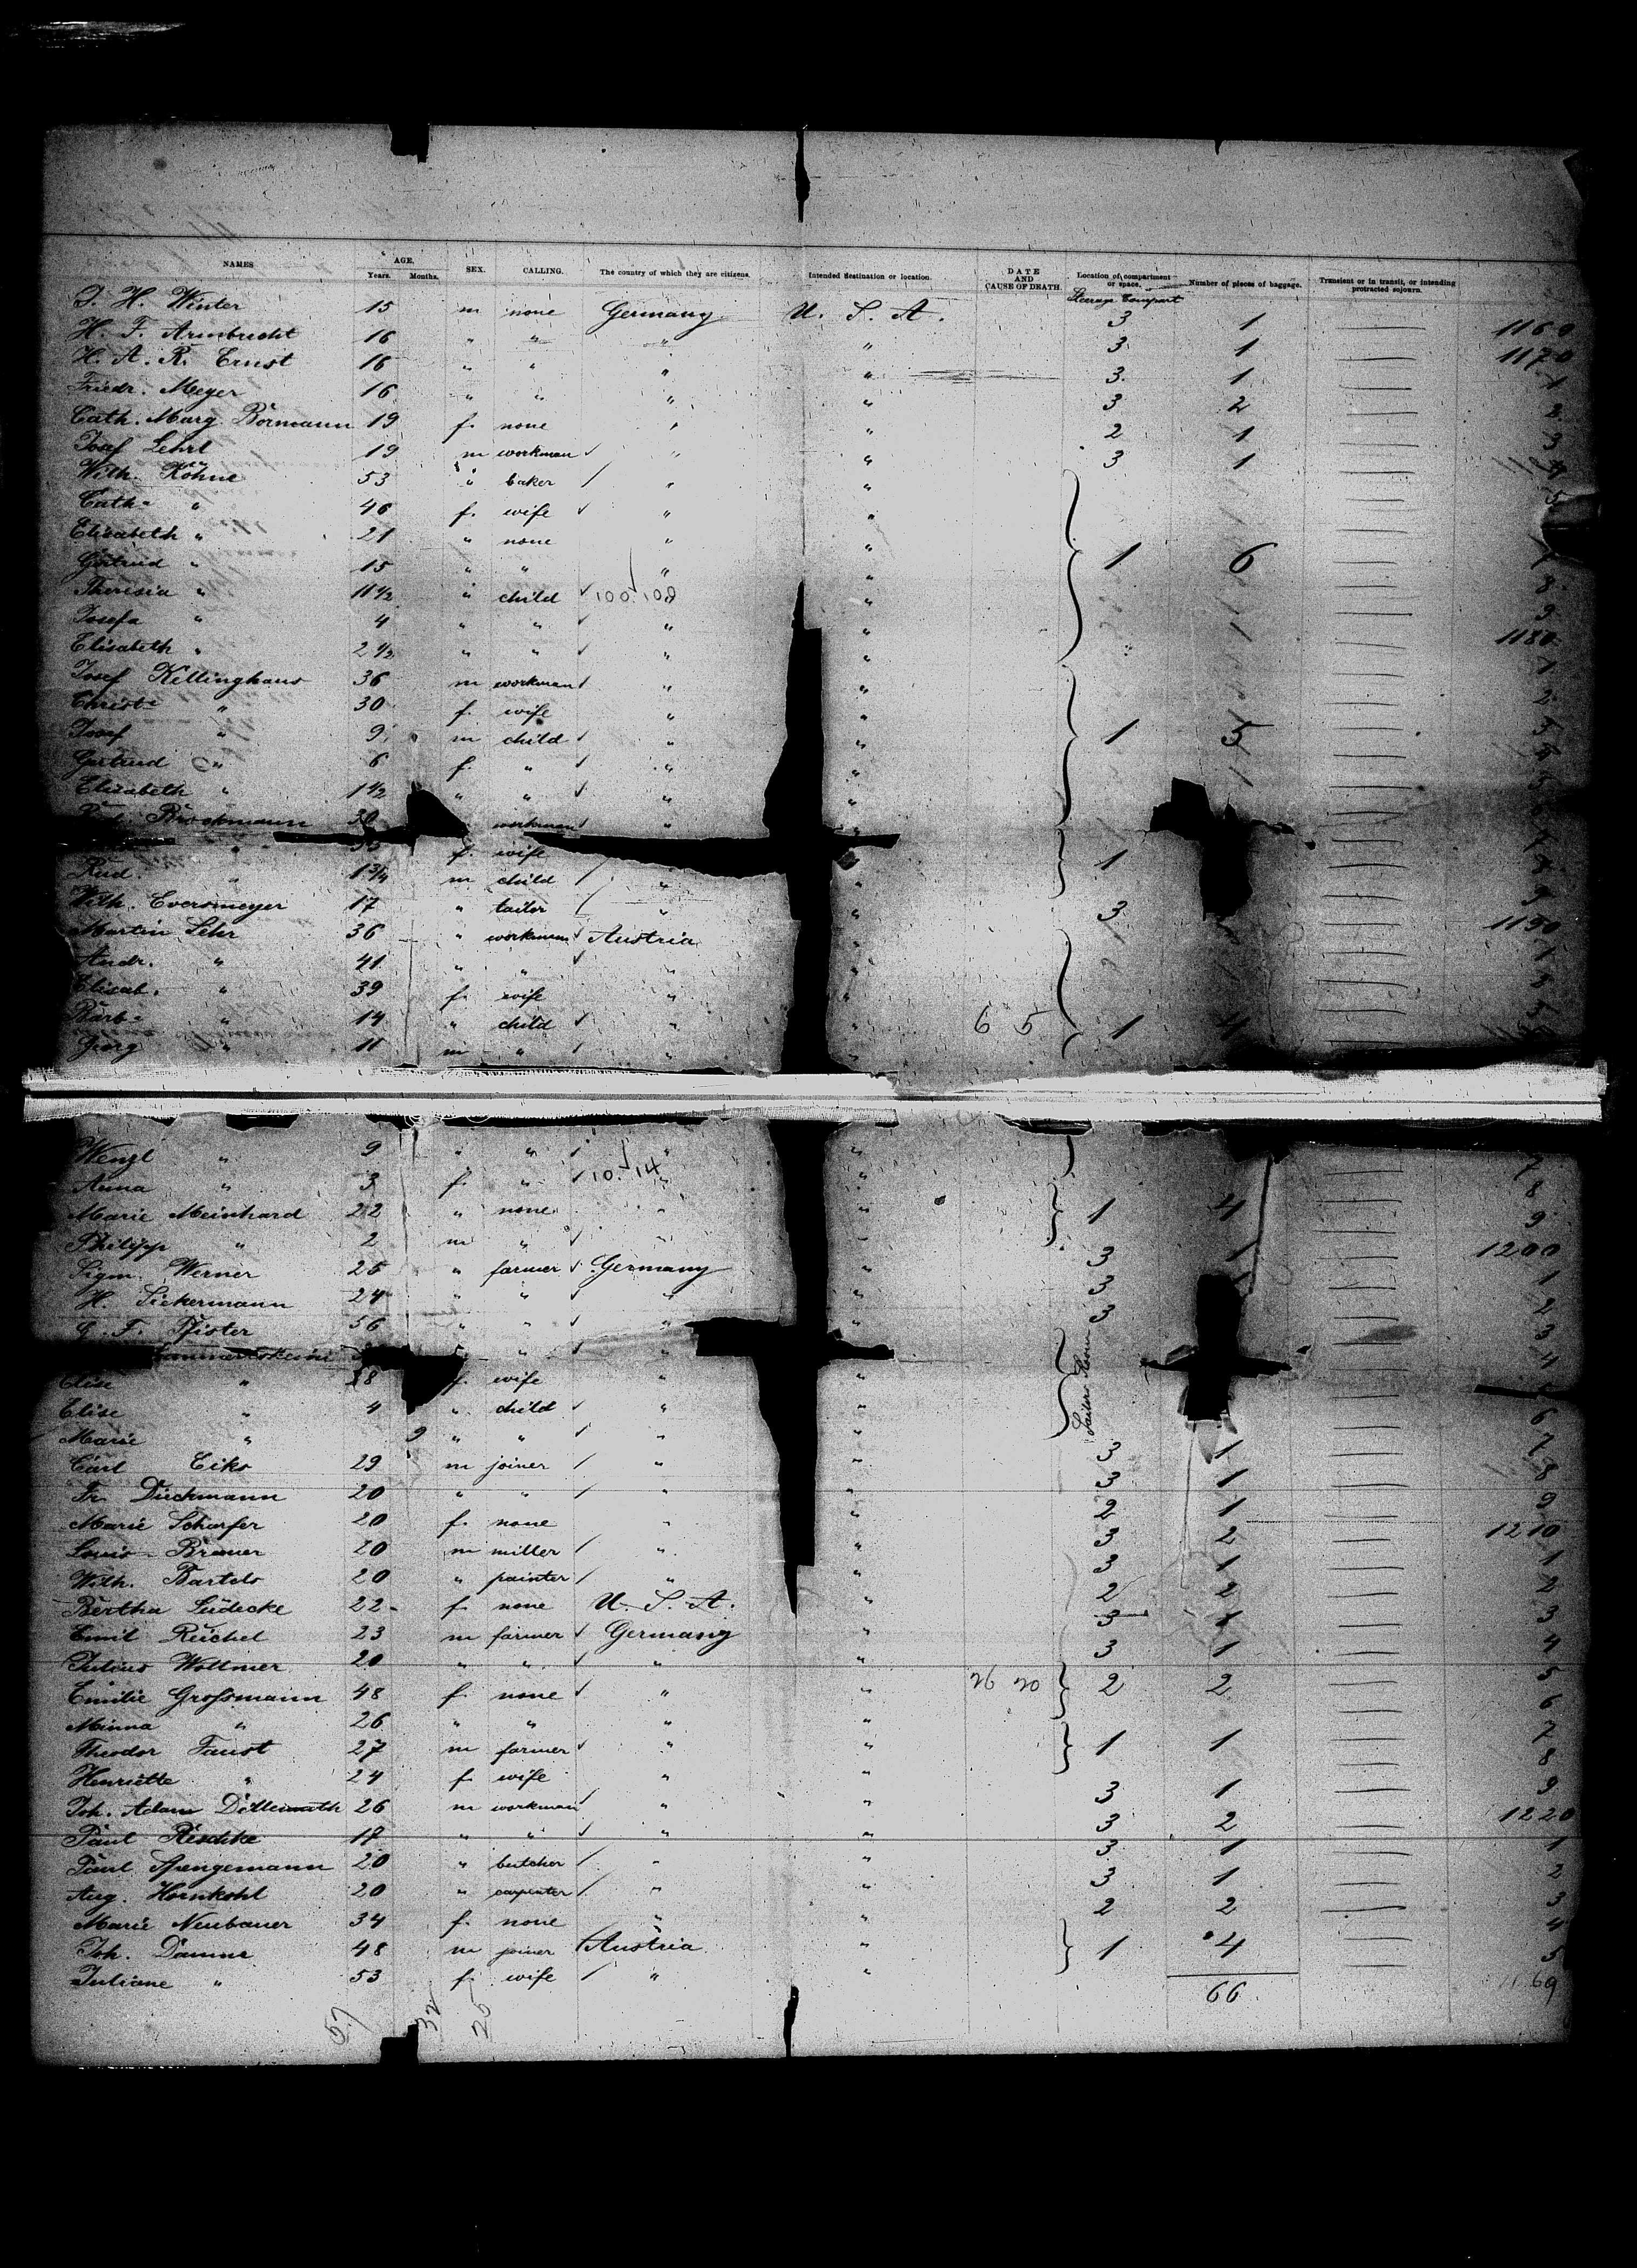 NAMES AGE. Years. Months. SEX. CALLING. The country of which they are citizens. Intended destination or location. DATE AND CAUSE OF DEATH. Location of compartment or space. Number of pieces of baggage. Transient or in transit, or intending protracted sojourn.
Steerage Compart
J. H. Winter 15 m none Germany U. S. A. 3 1 1160
H. F. Armbrecht 16 " " " " 3 1 1170
H. A. R. Ernst 16 " " " " 3 1 1
Friedr. Meyer 16 " " " " 3 2 2
Cath. Marg. Bormann 19 f. none " " 2 1 3
Josef Lehrl 19 m workman " " 3 1 4
Wilh. Köhne 53 " baker " " 5
Cath. " 46 f. wife " "
Elisabeth " 21 " none " " 1 6 7
Gertrud " 15 " " " " 8
Theresia " 11 1/2 " child 100.100 " " 9
Josefa " 4 " " " " 1180
Elisabeth " 2 1/2 " " " " 1
Josef Kellinghaus 36 m workman " " 2
Christ. " 30 f. wife " " 3
Josef " 9 m child " " 1 5 4
Gertrud " 6 f. " " " 5
Elisabeth " 1 1/2 " " " "
Brockmann 30 workman "
" f. wife 1
Rud. " 1 3/4 m child " "
Wilh. Eversmeyer 17 " tailor " " 3 9
Martin Lehr 36 " workman Austria " 1190
Andr. " 41 " " " " 1
Elisab. " 39 f. wife " " 2
Barb. " 14 " child " " 6 5 1 3
Georg " 11 m " " "
Wenzl " 9 " " " " 7
Anna " 3 f. " 10.14 " " 8
Marie Meinhard 22 " none " " 1 4 9
Philipp " 2 m " " " 1200
Sigm. Werner 25 " farmer Germany " 3 1 1
H. Siekermann 24 " " " " 3 2
C. F. Pfister 56 " " " " 3 3
" " " 4
Elise " 28 f. wife " "
Elise " 4 " child " " 6
Marie " 9 " " " " 7
Sailers Room
Carl Eiks 29 m joiner " " 3 1 8
Fr. Dieckmann 20 " " " " 3 1 9
Marie Scharfer 20 f. none " " 2 1 1210
Louis Bremer 20 m miller " " 3 2 1
Wilh. Bartels 20 " painter " " 3 1 2
Bertha Lüdecke 22 f. none U. S. A. " 2 2 3
Emil Reichel 23 m farmer Germany " 3 1 4
Julius Wollmer 20 " " " " 3 1 5
Emilie Großmann 48 f. none " " 26 20 2 2 6
Minna " 26 " " " " 7
Theodor Faust 27 m farmer " " 1 1 8
Henriette " 24 f. wife " " 9
Joh. Adam 26 m workman " " 3 1 1220
Paul Reschke 17 " " " " 3 2 1
Paul Spengemann 20 " butcher " " 3 1 2
Aug. Hornkohl 20 " carpenter " " 3 1 3
Marie Neubauer 34 f. none " " 2 2 4
Joh. Damme 48 m joiner Austria " 1 4 5
Juliane " 53 f. wife " " 69
66
57 32 25